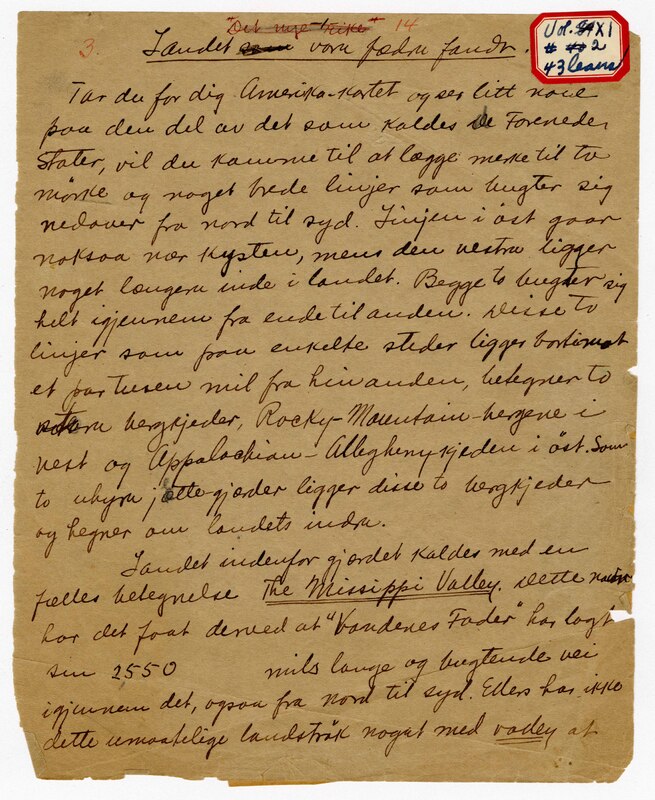 "Det nye Rike" 14
3.
Landet som vore fædre fandt.
Vol. XI
# 2
43 leaves
Tar du for dig Amerika-kartet og ser litt nøie
paa den del av det som kaldes De Forenede
Stater, vil du komme til at lægge merke til to
mørke og noget brede linjer som bugter sig
nedover fra nord til syd. Linjen i øst gaar
noksaa nær kysten, mens den vestre ligger
noget længere inde i landet. Begge to bugter sig
helt igjennem fra ende til anden. Disse to
linjer som paa enkelte steder ligger bortimot
et par tusen mil fra hinanden, betegner to
store bergkjeder, Rocky-Mountain-bergene i
vest og Appalachian-Alleghenykjeden i öst. Som
to uhyre jættegjærder ligger disse to bergkjeder
og hegner om landets indre.
Landet indenfor gjærdet kaldes med en
fælles betegnelse The Missippi Valley. Dette navn
har det faat derved at "Vandenes Fader" har lagt
sin 2550 mils lange og bugtende vei
igjennem det, ogsaa fra nord til syd. Ellers har ikke
dette umaatelige landstrøk noget med valley at